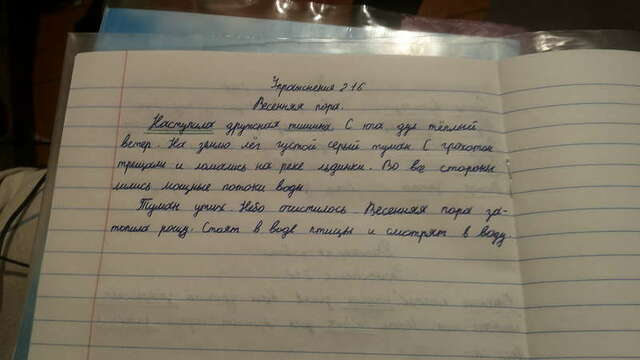 Упражнения 216
Весенняя пора.
Наступила дружная тишина. С юга дул тёплый
ветер. На землю лёг густой серый туман С грохотом
трещали и ломались на реке льдинки. Во все стороны
лились мощные потоки воды.
Туман утих. Небо очистилось Весенняя пора за-
топила рощу. Стоят в воде птицы и смотрят в воду.